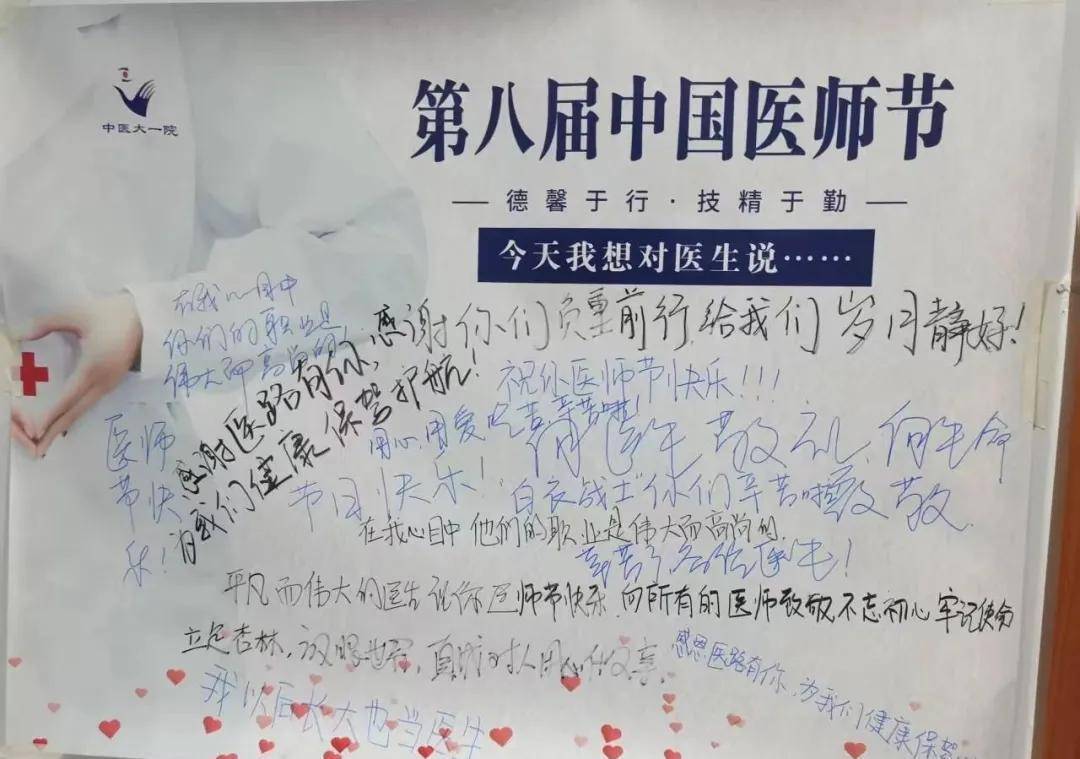 中医大一院
第八届中国医师节
德馨于行·技精于勤
今天我想对医生说……
在我心目中
你们的职业是
伟大而高尚的
感谢你们负重前行给我们岁月静好!
感谢医路有你,
为我们健康保驾护航!
祝你医师节快乐!!!
用心用爱 辛苦啦!
向医生敬礼,向生命
致敬
医师
节快
乐!
节日快乐!
白衣战士 你们辛苦啦
在我心目中他们的职业是伟大而高尚的.
辛苦了各位医生!
平凡而伟大的医生 祝你医师节快乐 向所有的医师致敬 不忘初心 牢记使命
立足杏林,放眼世界,真诚对人用心
感恩医路有你,为我们健康保驾
我以后长大也当医生